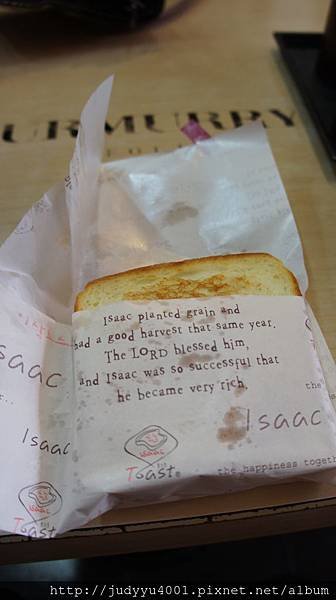 URMURRY
Isaac planted grain and
had a good harvest that same year.
The LORD blessed him,
and Isaac was so successful that
he became very rich.
Isaac
Isaac
Isaac
the
ISAAC
Toast
the happiness togeth
ISAAC
Toast
http://judyyu4001.pixnet.net/album